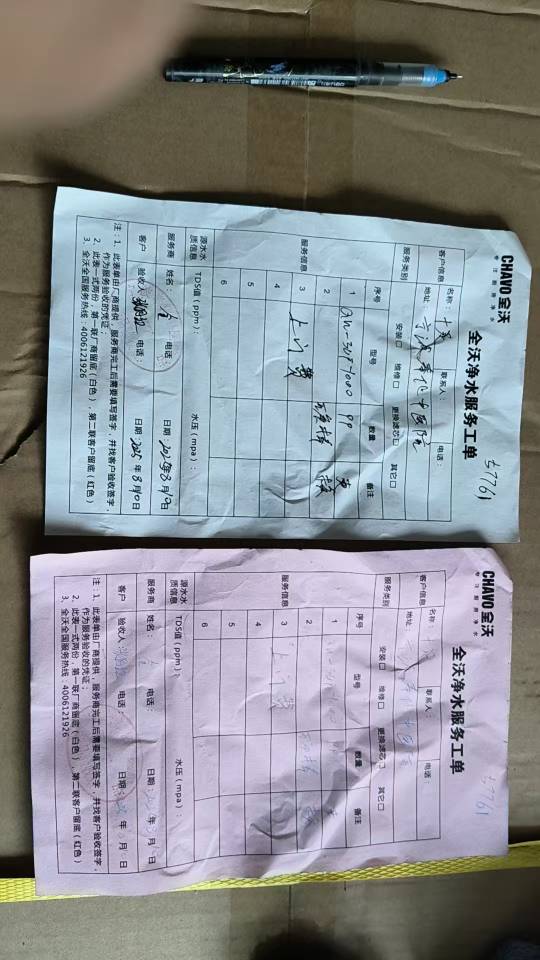 CHAVO 全沃
专注商用净水
全沃净水服务工单
57761
客户信息 名称： 联系人： 电话：
地址：宁波奉化中医院
服务类别 安装□ 维修□ 更换滤芯□ 其它□
服务信息 序号 型号 数量 备注
1
2
3 上门费
4
5
6
源水水质信息 TDS值（ppm）： 水压（mpa）：
服务商 姓名： 电话： 日期：2025年8月10日
客户 验收人： 电话： 日期：2025年8月10日
注：1、此表单由厂商提供，服务商完工后需要填写签字，并找客户验收签字，
作为服务验收的凭证；
2、此表一式两份，第一联厂商留底（白色），第二联客户留底（红色）
3、全沃全国服务热线：4006121926
CHAVO 全沃
专注商用净水
全沃净水服务工单
57761
客户信息 名称： 联系人： 电话：
地址：
服务类别 安装□ 维修□ 更换滤芯□ 其它□
服务信息 序号 型号 数量 备注
1
2
3 上门费
4
5
6
源水水质信息 TDS值（ppm）： 水压（mpa）：
服务商 姓名： 电话： 日期： 年 月 日
客户 验收人： 电话： 日期： 年 月 日
注：1、此表单由厂商提供，服务商完工后需要填写签字，并找客户验收签字，
作为服务验收的凭证；
2、此表一式两份，第一联厂商留底（白色），第二联客户留底（红色）
3、全沃全国服务热线：4006121926